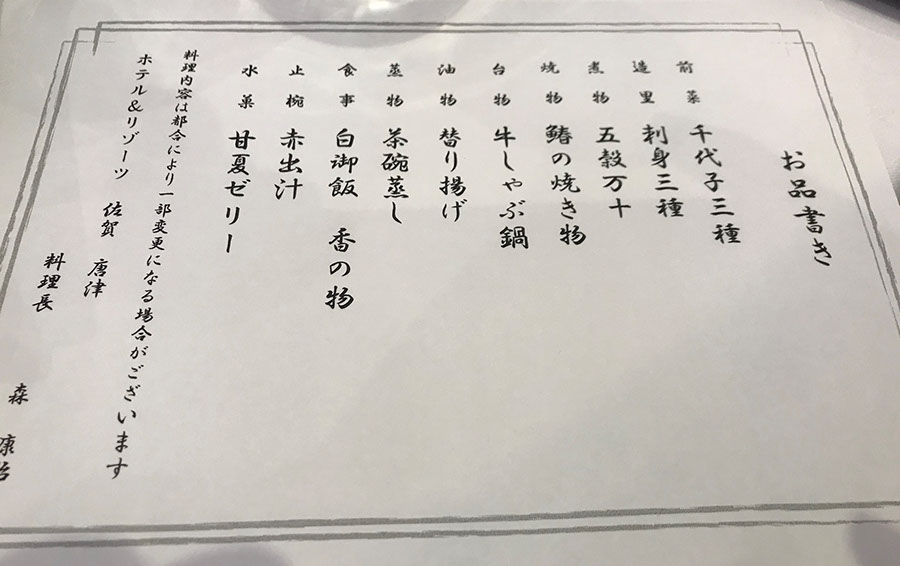 お品書き
前菜 千代子三種
造里 刺身三種
煮物 五穀万十
焼物 鰆の焼き物
台物 牛しゃぶ鍋
油物 替り揚げ
蒸物 茶碗蒸し
食事 白御飯 香の物
止椀 赤出汁
水菓 甘夏ゼリー
料理内容は都合により一部変更になる場合がございます
ホテル&リゾーツ 佐賀 唐津
料理長
森 康治